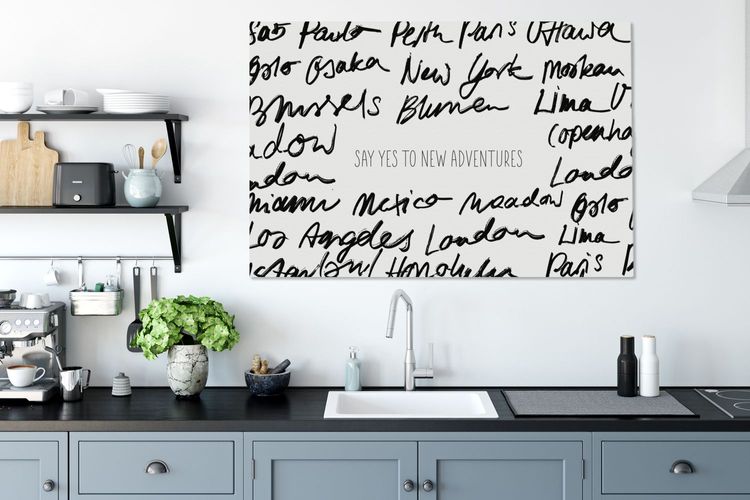 Sao Paulo Perth Paris Ottawa
Oslo Osaka New York Moskau
Brussels Blumen Lima V
adow Copenha
ndon SAY YES TO NEW ADVENTURES Londo
Miami Mexico meadow Oslo
Los Angeles London Lima
Istanbul Honolulu Paris P